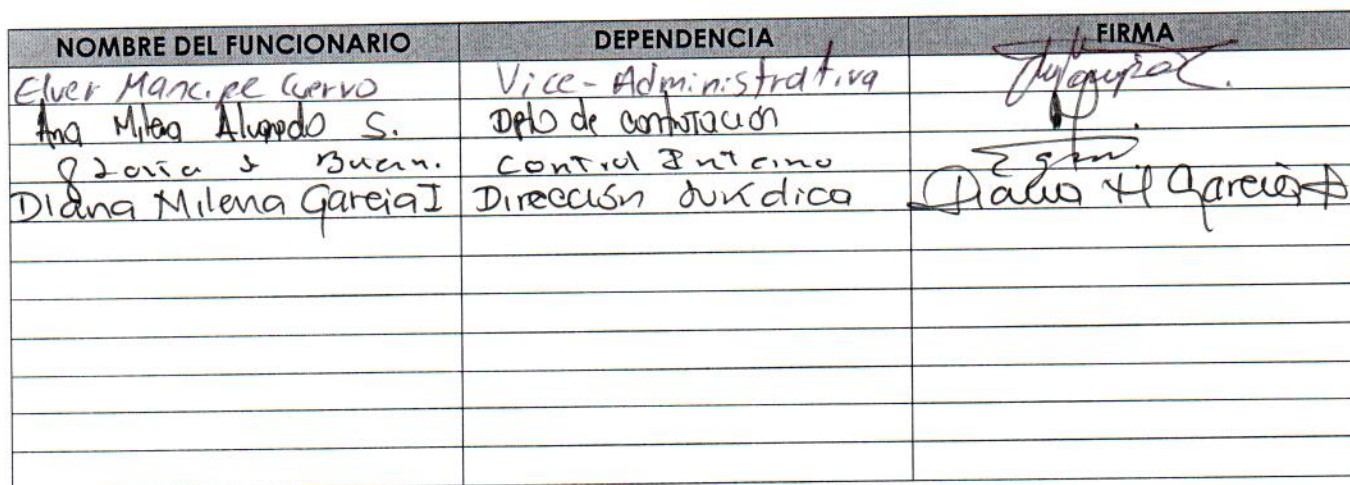 NOMBRE DEL FUNCIONARIO DEPENDENCIA FIRMA
Elver Mancipe Cuervo Vice-Administrativa
Ana Milena Alvarado S. Dpto de contratación
Control Interno
Diana Milena Garcia I Dirección Jurídica Diana M Garcia